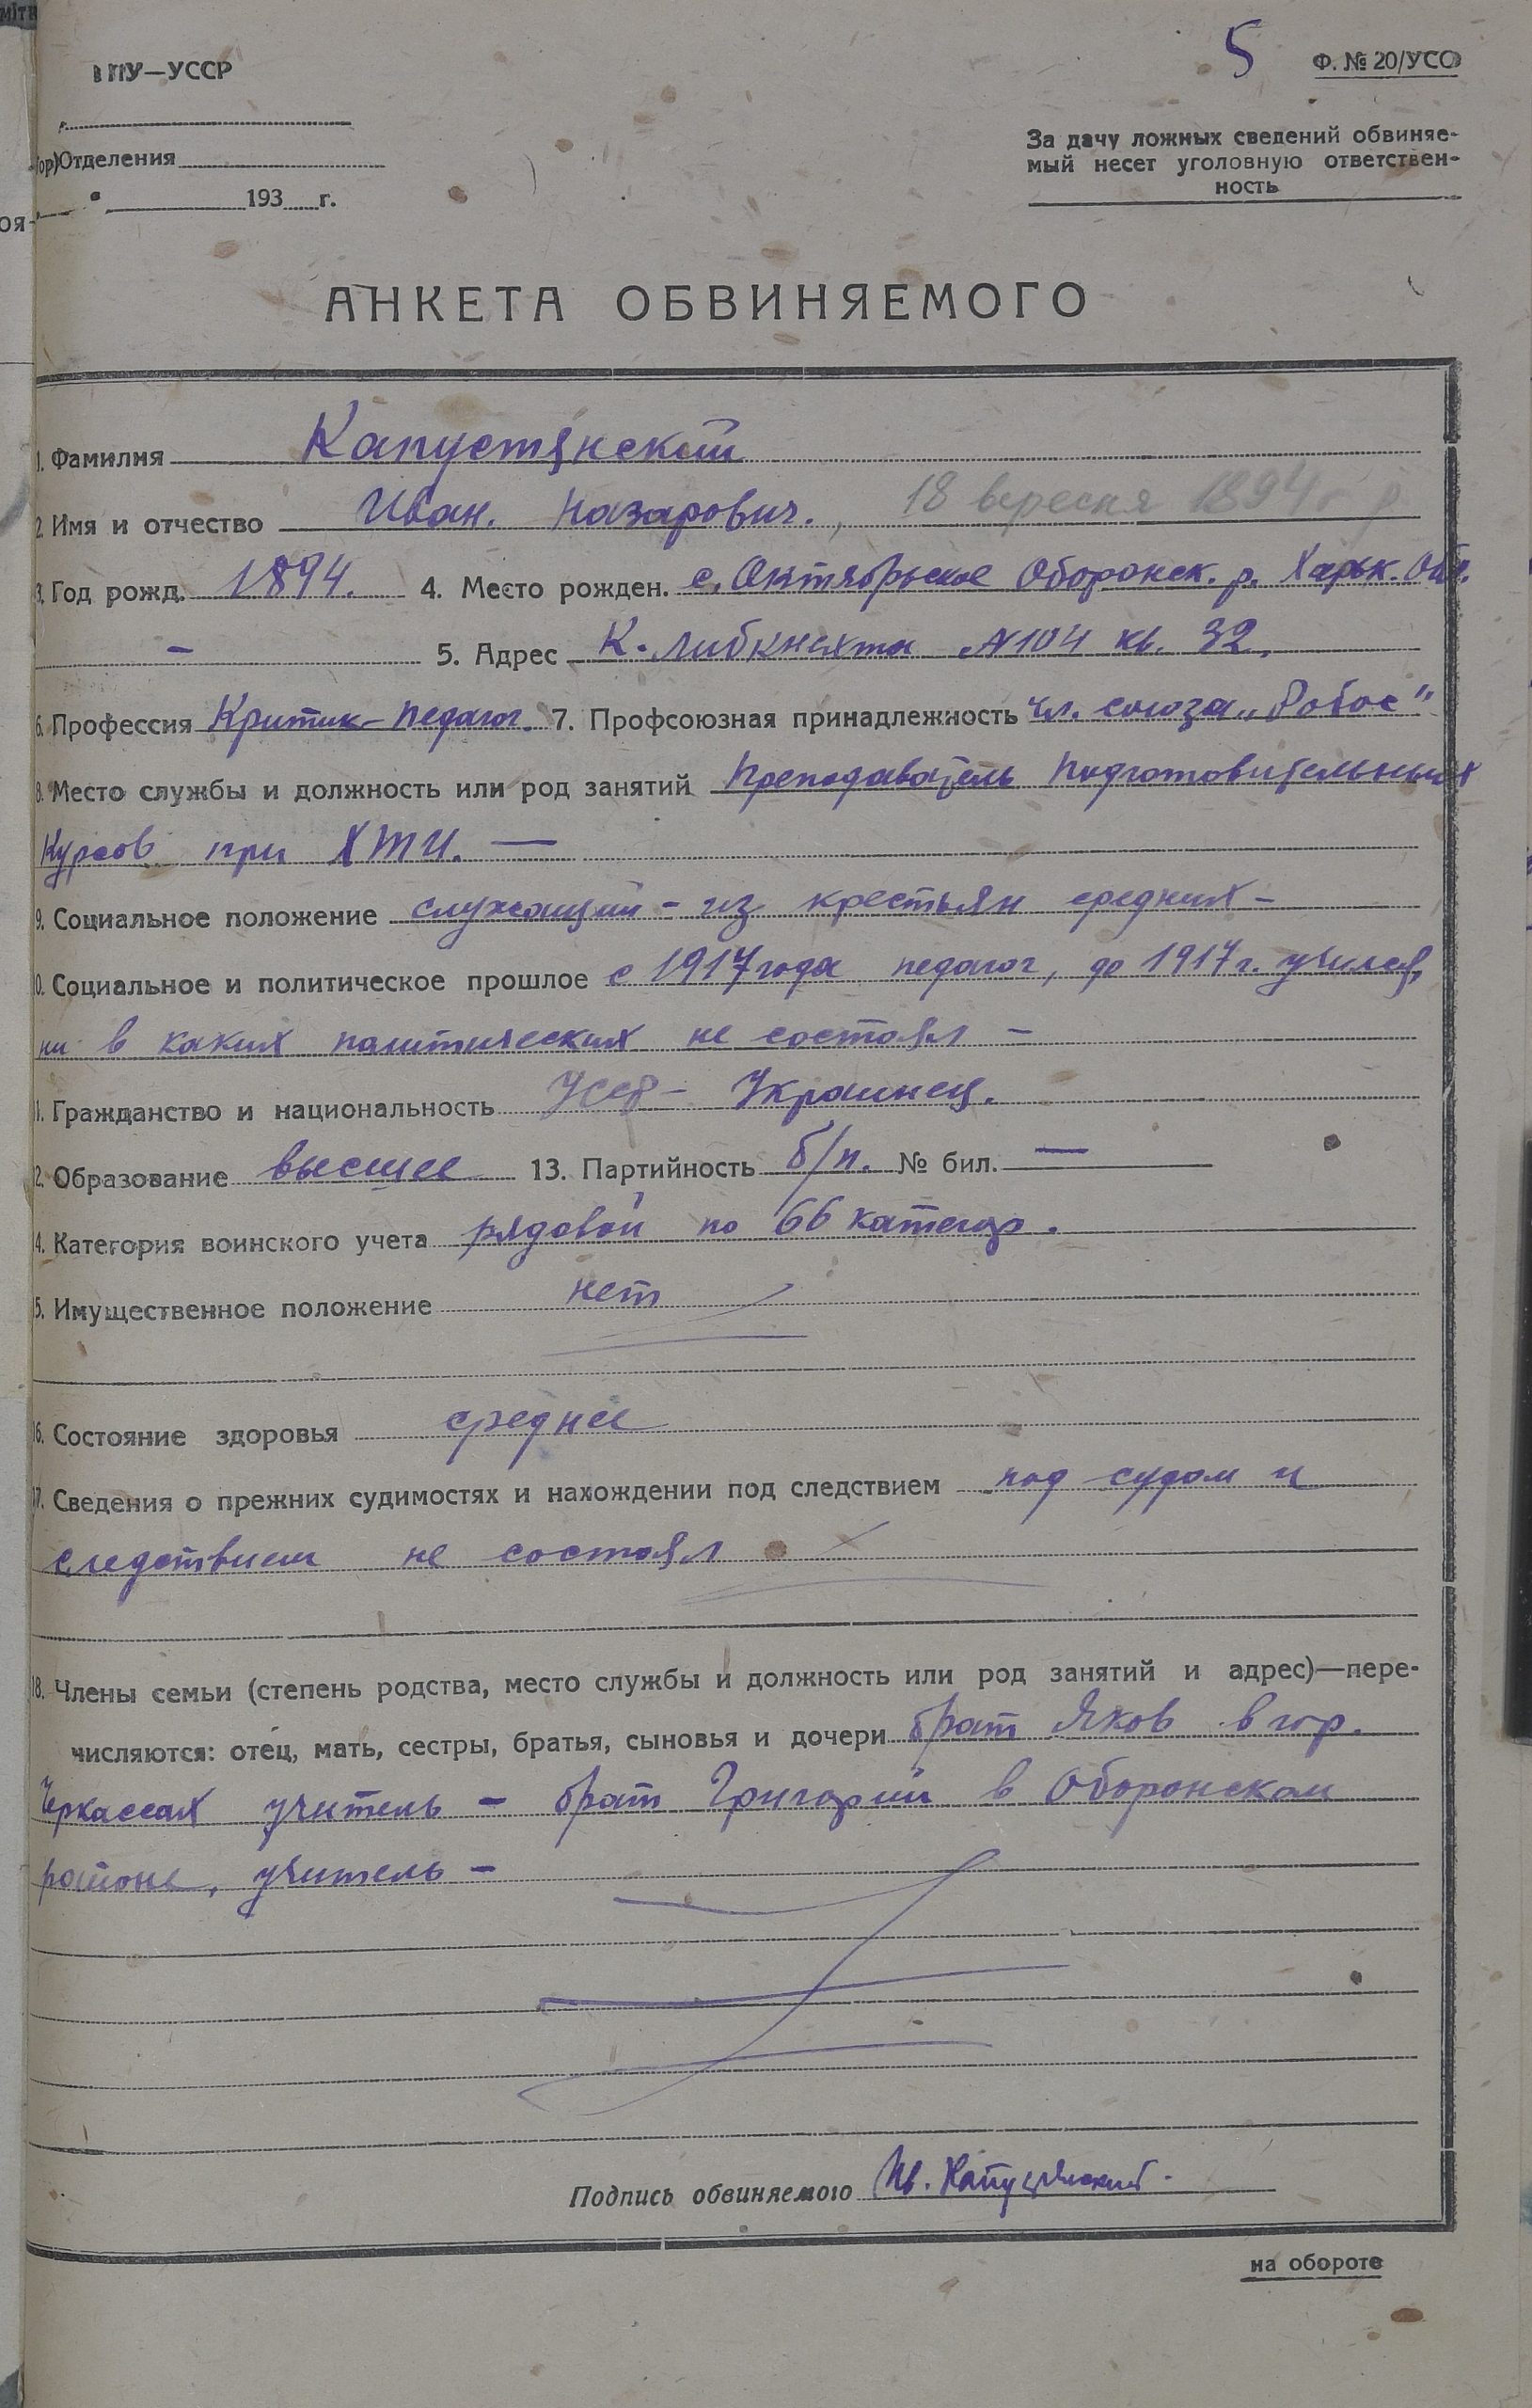 5
ГПУ—УССР
Ф. № 20/УСО
За дачу ложных сведений обвиняе-
мый несет уголовную ответствен-
ность
ор)Отделения
193 г.
оя-
АНКЕТА ОБВИНЯЕМОГО
1. Фамилия Капустянский
2. Имя и отчество Иван. Назарович., 18 вересня 1894 г р
3. Год рожд. 1894. 4. Место рожден. с. Октябрьское Оборонск. р. Харьк. Обл.
— 5. Адрес К. Либкнехта №104 кв. 32.
6. Профессия Критик – педагог. 7. Профсоюзная принадлежность чл. союза „Робос"
8. Место службы и должность или род занятий преподаватель подготовительных
курсов при ХТИ. —
9. Социальное положение служащий – из крестьян средних –
10. Социальное и политическое прошлое с 1917 года педагог, до 1917 г. учился,
ни в каких политических не состоял –
11. Гражданство и национальность Украинец.
12. Образование высшее 13. Партийность б/п. № бил. —
14. Категория воинского учета рядовой по 66 категор.
15. Имущественное положение нет
16. Состояние здоровья среднее
17. Сведения о прежних судимостях и нахождении под следствием под судом и
следствием не состоял
18. Члены семьи (степень родства, место службы и должность или род занятий и адрес)—пере-
числяются: отец, мать, сестры, братья, сыновья и дочери брат Яков в гор.
Черкассах учитель – брат Григорий в Оборонском
районе, учитель –
Подпись обвиняемого Ив. Капустянский.
на обороте